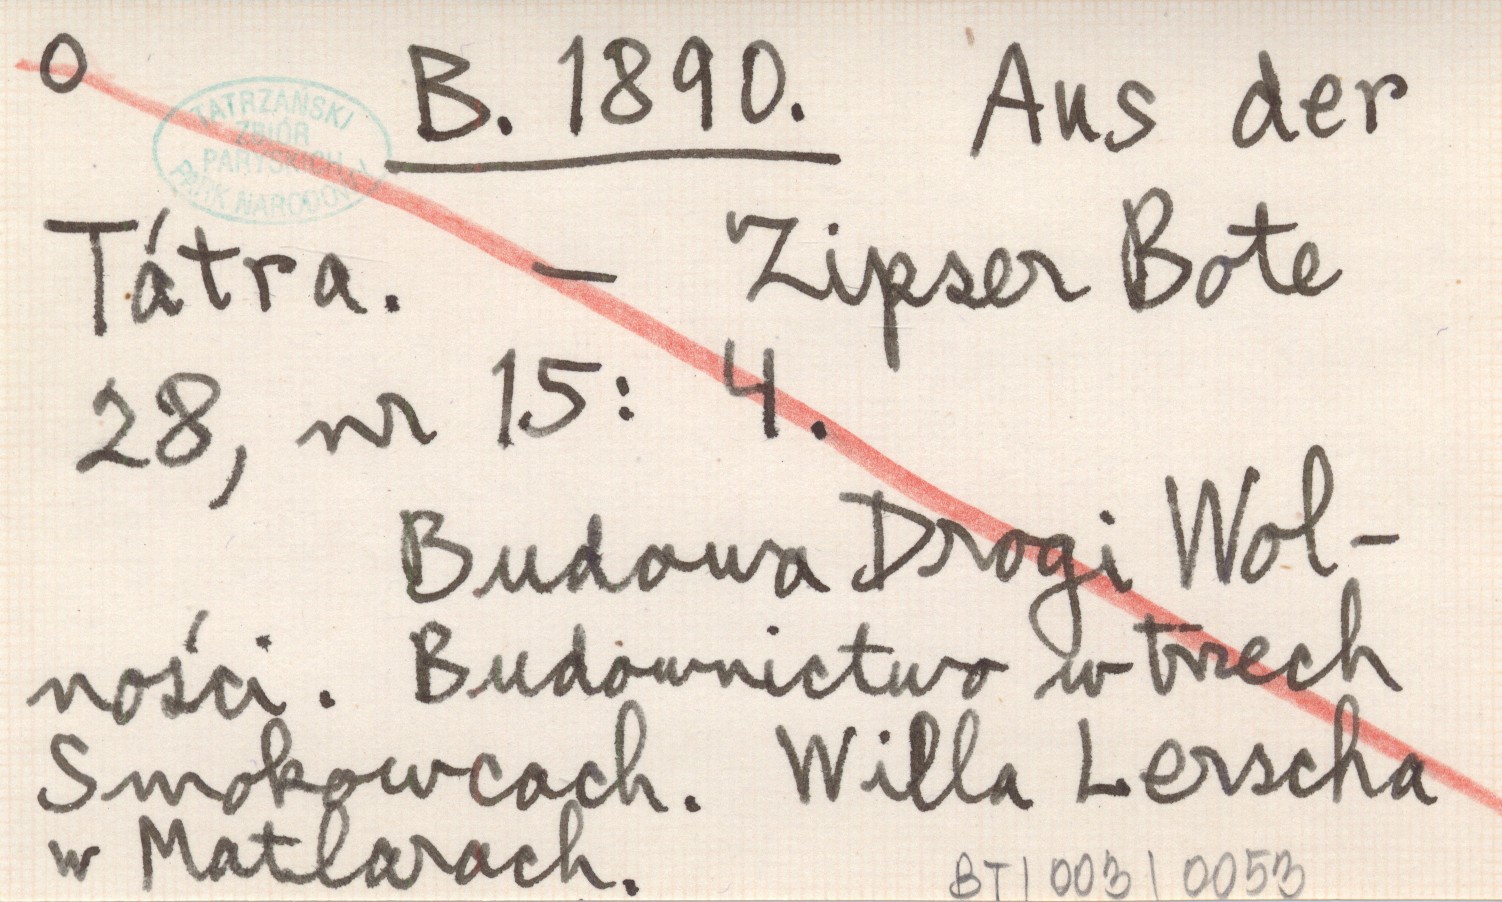 O B. 1890. Aus der
TATRZAŃSKI
ZBIÓR
PARYSKICH
PARK NARODOWY
Tátra. — Zipser Bote
28, nr 15: 4.
Budowa Drogi Wol-
ności. Budownictwo w trzech
Smokowcach. Willa Lerscha
w Matlarach.
BT|003|0053